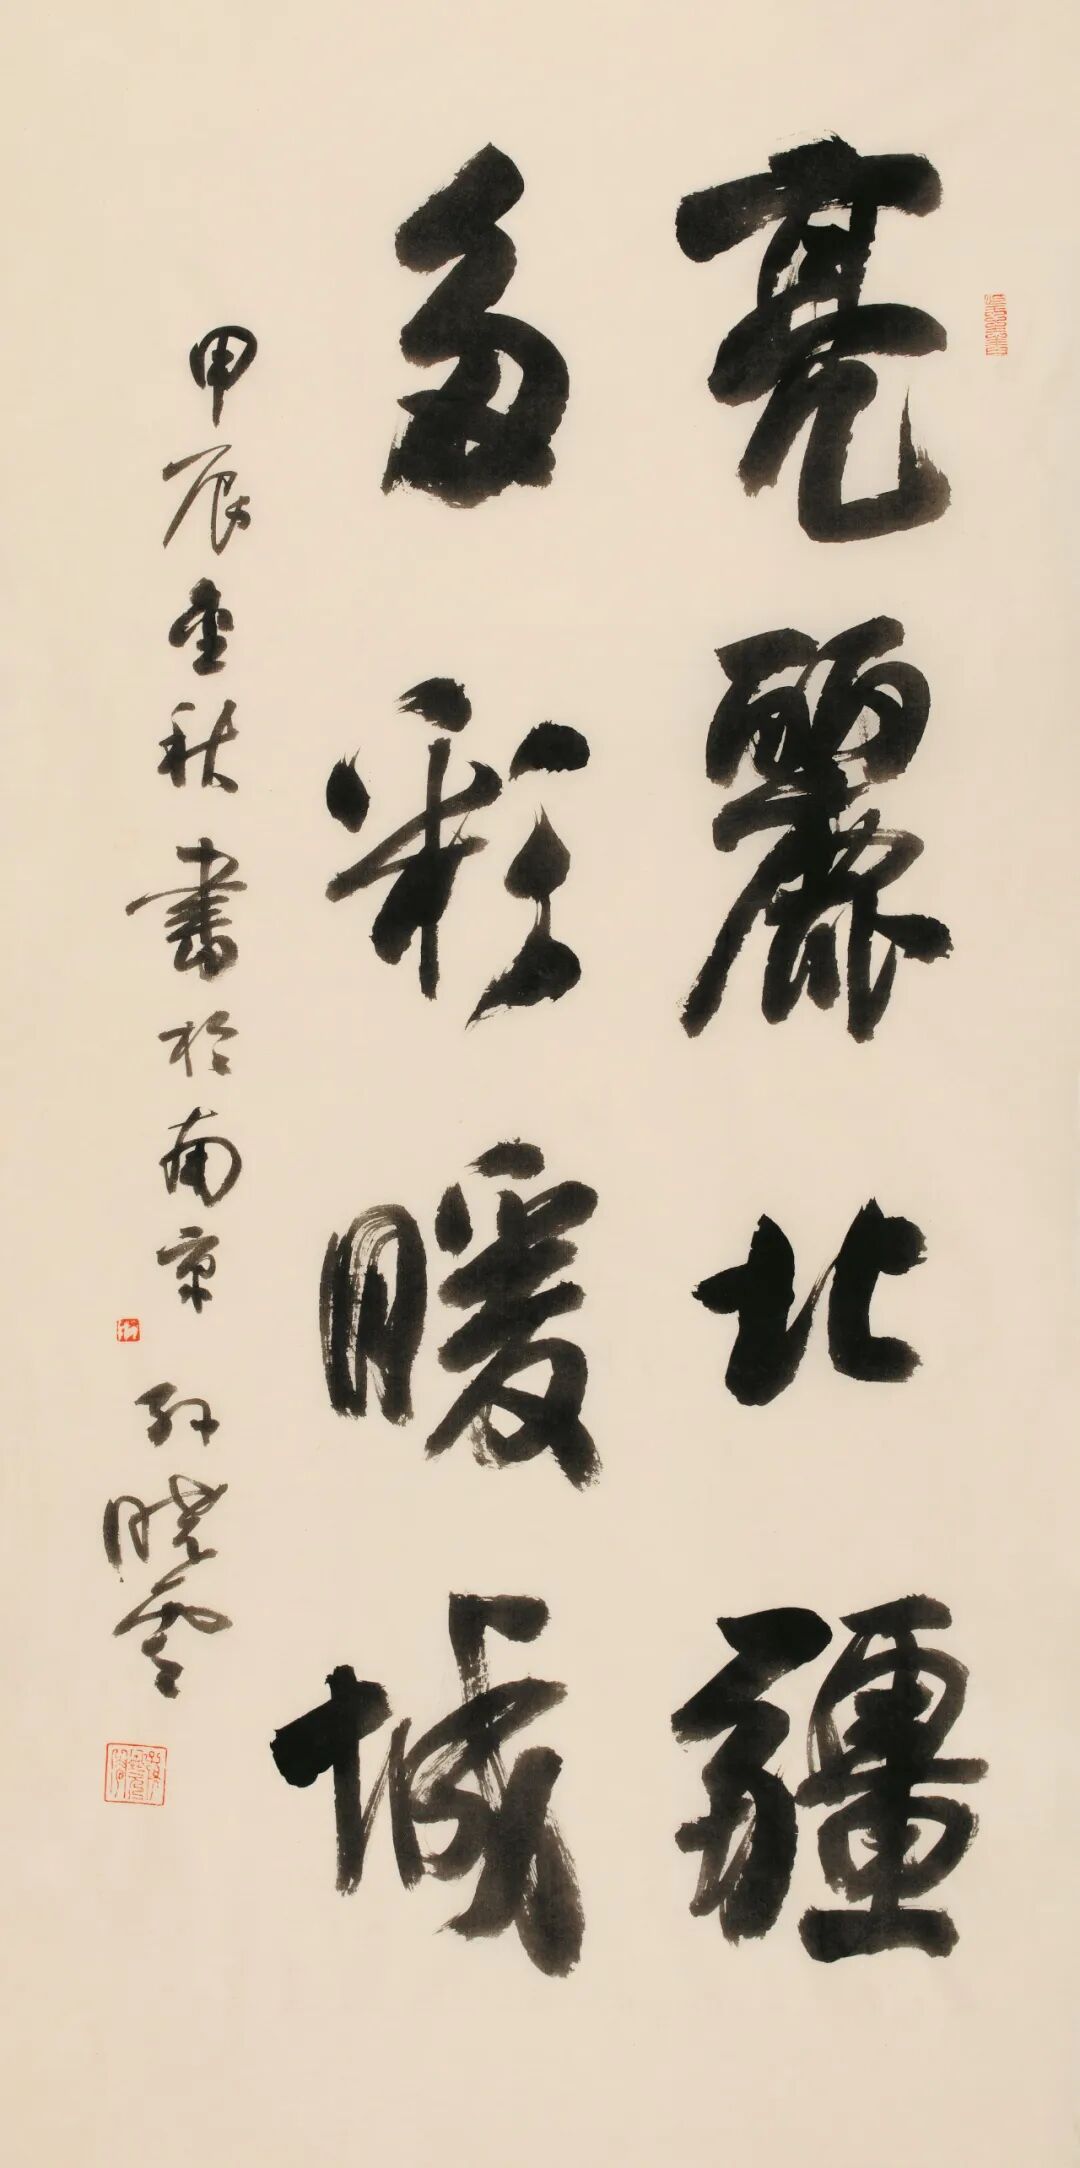 亮麗北疆
多彩暖城
甲辰金秋書於南京
孙晓雲